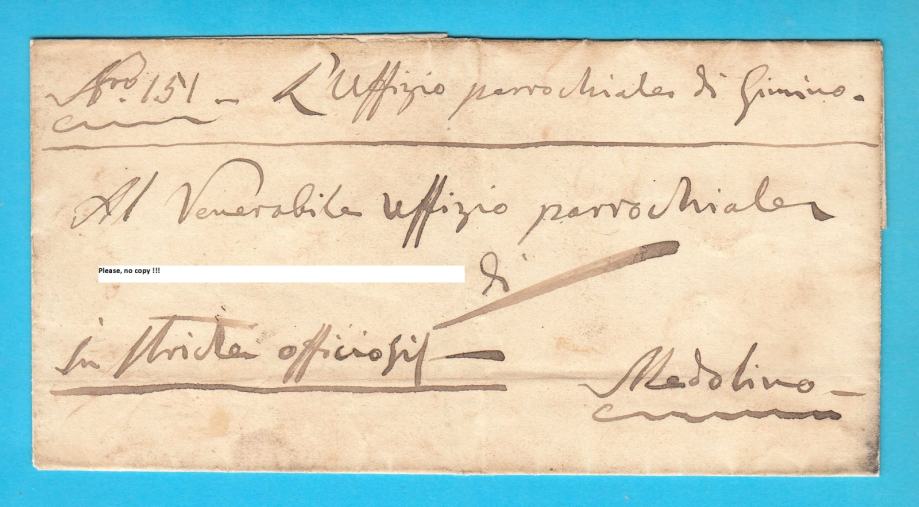 Nro. 151 - L'Uffizio parrochiale di Gimino.
Al Venerabile Uffizio parrochiale
Please, no copy !!!
di
in strictis officiosis —
Medolino —